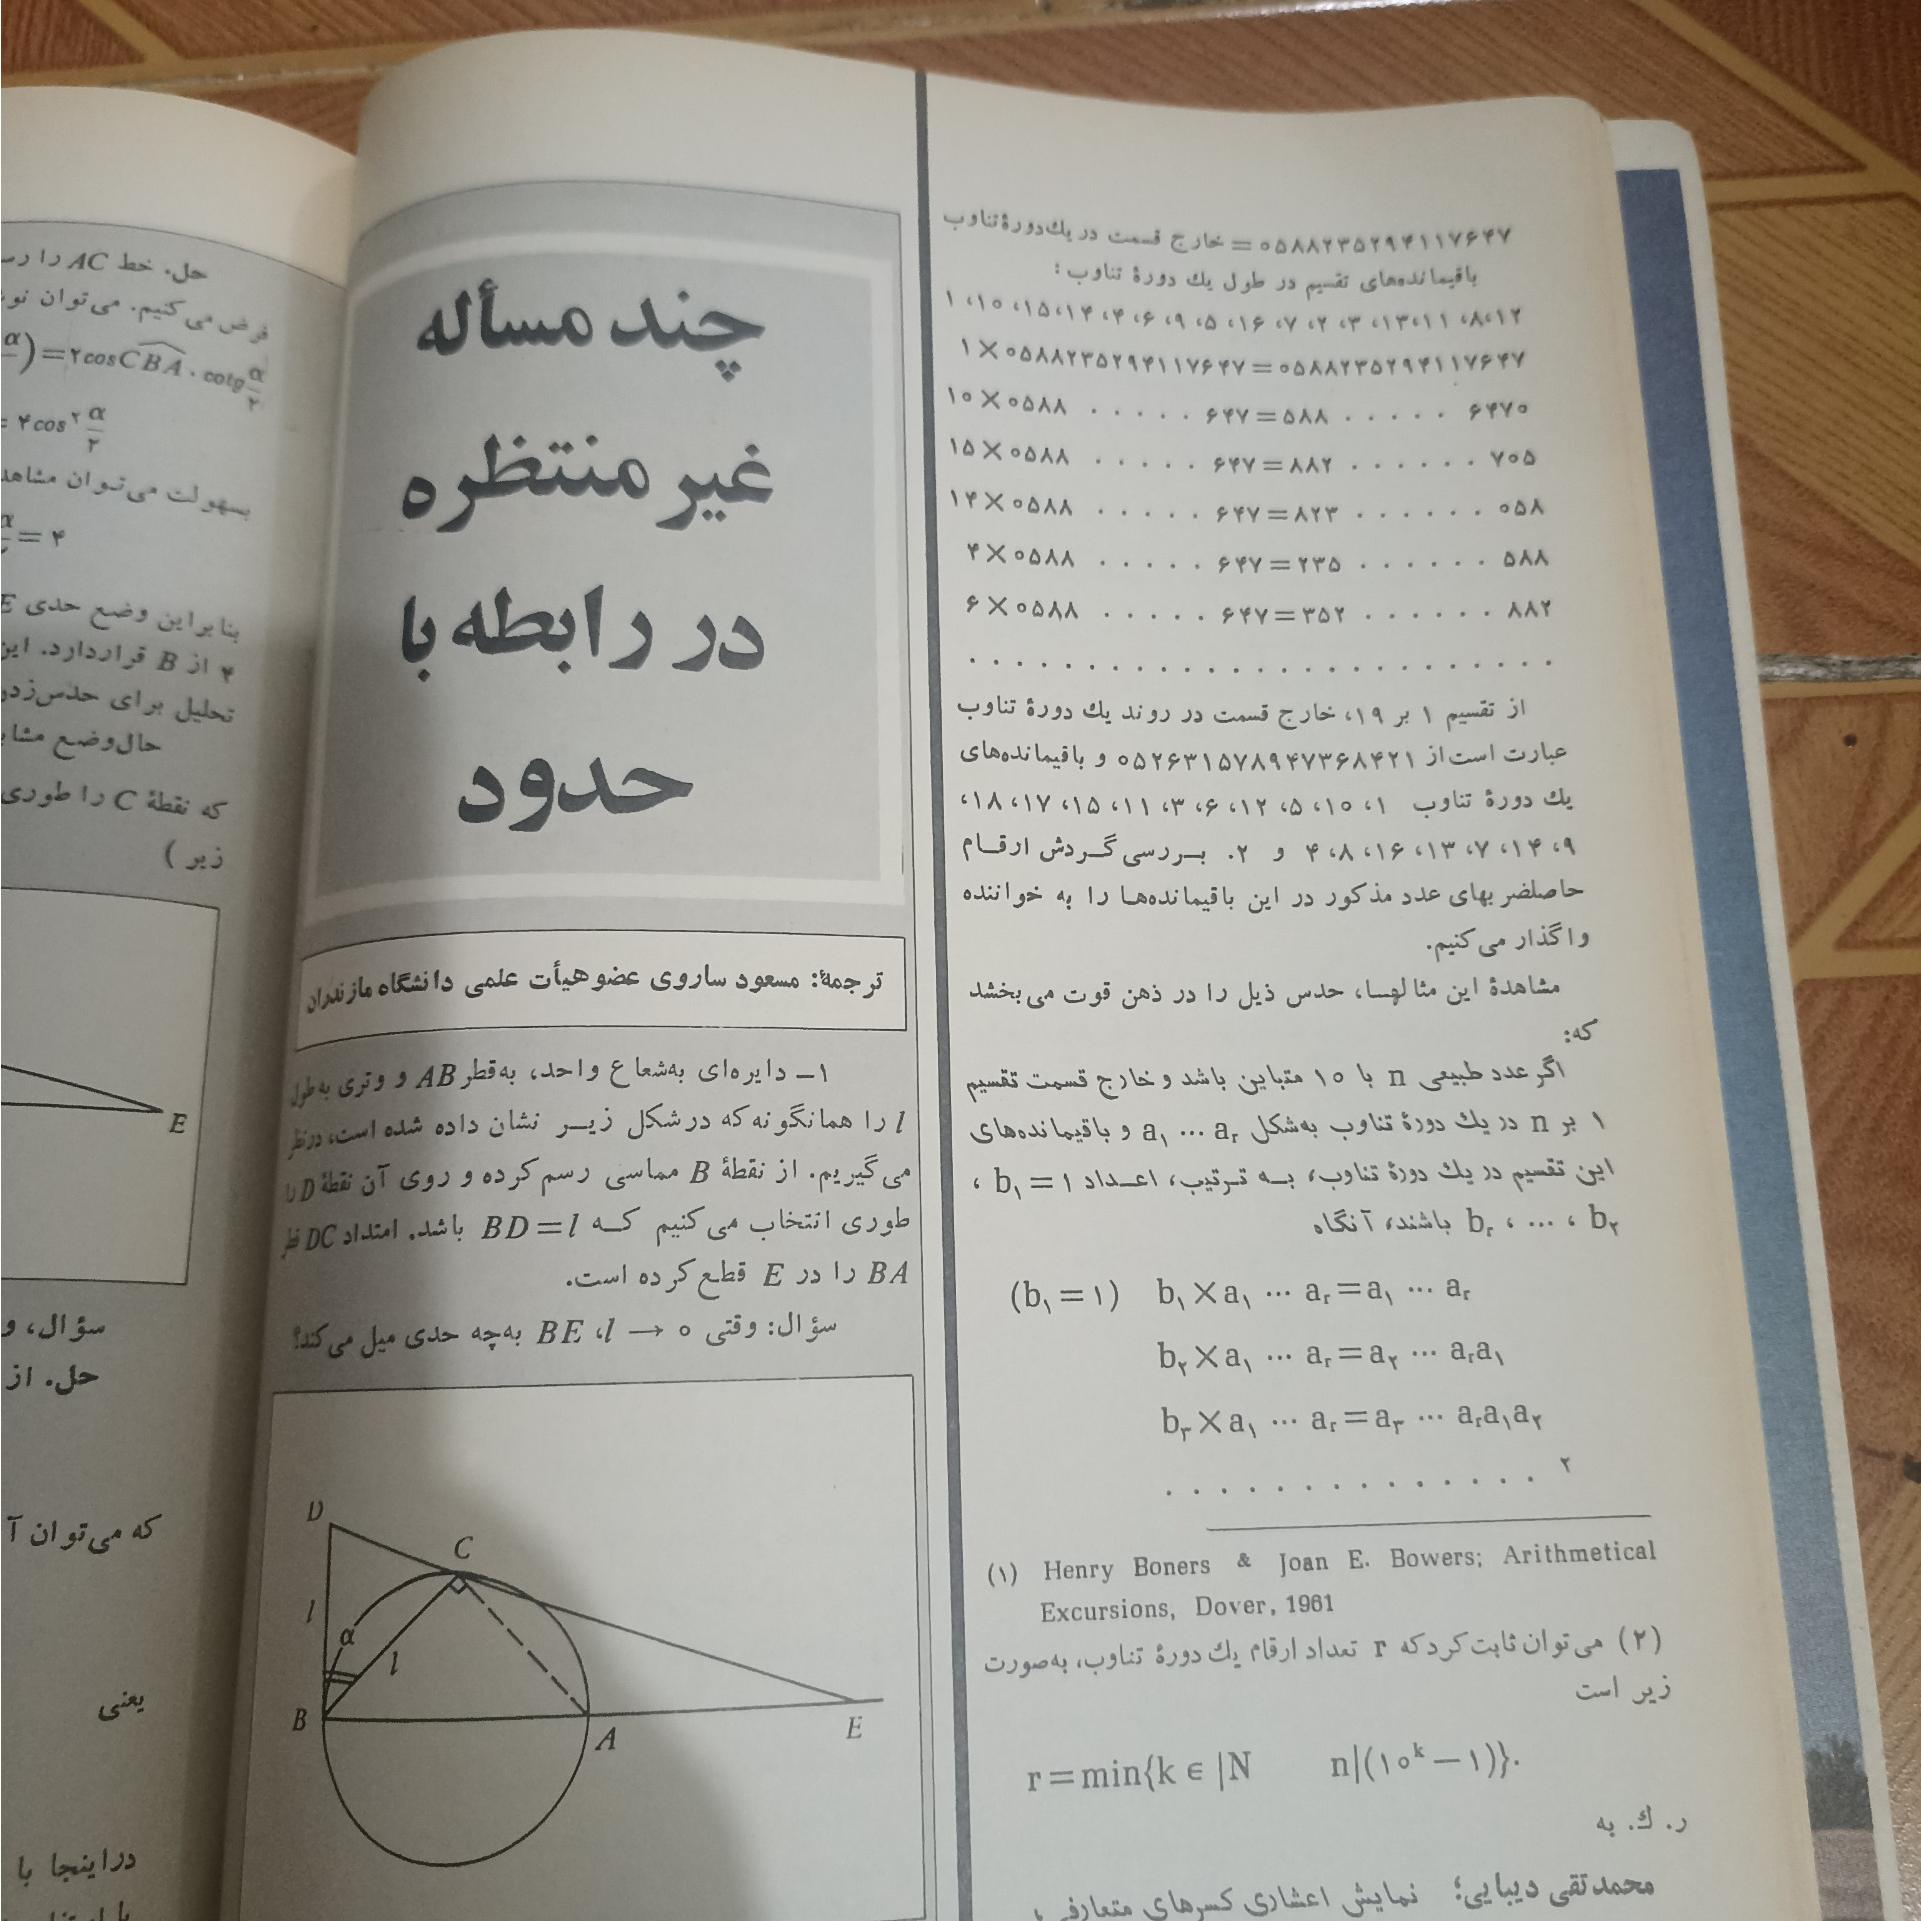 ۰۵۸۸۲۳۵۲۹۴۱۱۷۶۴۷ = خارج قسمت در یك دورهٔ تناوب
باقیمانده‌های تقسیم در طول یك دورهٔ تناوب:
۱، ۱۰، ۱۵، ۱۴، ۴، ۶، ۹، ۵، ۱۶، ۷، ۲، ۳، ۱۳، ۱۱، ۸، ۱۲
۱×۰۵۸۸۲۳۵۲۹۴۱۱۷۶۴۷=۰۵۸۸۲۳۵۲۹۴۱۱۷۶۴۷
۱۰×۰۵۸۸ . . . . . ۶۴۷=۵۸۸ . . . . . ۶۴۷۰
۱۵×۰۵۸۸ . . . . . ۶۴۷=۸۸۲ . . . . . . ۷۰۵
۱۴×۰۵۸۸ . . . . . ۶۴۷=۸۲۳ . . . . . . ۰۵۸
۴×۰۵۸۸ . . . . . ۶۴۷=۲۳۵ . . . . . . ۵۸۸
۶×۰۵۸۸ . . . . . ۶۴۷=۳۵۲ . . . . . . ۸۸۲
. . . . . . . . . . . . . . . . . . . . . . . . .
از تقسیم ۱ بر ۱۹، خارج قسمت در روند یك دورهٔ تناوب
عبارت است از ۰۵۲۶۳۱۵۷۸۹۴۷۳۶۸۴۲۱ و باقیمانده‌های
یك دورهٔ تناوب ۱، ۱۰، ۵، ۱۲، ۶، ۳، ۱۱، ۱۵، ۱۷، ۱۸،
۹، ۱۴، ۷، ۱۳، ۱۶، ۸، ۴ و ۲. بررسی گردش ارقام
حاصلضربهای عدد مذکور در این باقیمانده‌ها را به خواننده
واگذار می‌کنیم.
مشاهدهٔ این مثالها، حدس ذیل را در ذهن قوت می‌بخشد
که:
اگر عدد طبیعی n با ۱۰ متباین باشد و خارج قسمت تقسیم
۱ بر n در یك دورهٔ تناوب به‌شکل a₁ ... aᵣ و باقیمانده‌های
این تقسیم در یك دورهٔ تناوب، به ترتیب، اعداد b₁=۱ ،
b₂ ، ... ، bᵣ باشند، آنگاه
(b₁=۱) b₁×a₁ ... aᵣ=a₁ ... aᵣ
b₂×a₁ ... aᵣ=a₂ ... aᵣa₁
b₃×a₁ ... aᵣ=a₃ ... aᵣa₁a₂
. . . . . . . . . . . . . . ۲
(۱) Henry Boners & Joan E. Bowers; Arithmetical
Excursions, Dover, 1961
(۲) می‌توان ثابت کرد که r تعداد ارقام یك دورهٔ تناوب، به‌صورت
زیر است
r=min{k ∈ |N n|(۱۰ᵏ−۱)}.
ر. ك. به
محمدتقی دیبایی؛ نمایش اعشاری کسرهای متعارفی،
چند مسأله
غیر منتظره
در رابطه با
حدود
ترجمهٔ: مسعود ساروی عضو هیأت علمی دانشگاه مازندران
۱– دایره‌ای به‌شعاع واحد، به‌قطر AB و وتری به‌طول
l را همانگونه که در شکل زیر نشان داده شده است، در نظر
می‌گیریم. از نقطهٔ B مماسی رسم کرده و روی آن نقطهٔ D را
طوری انتخاب می‌کنیم که BD=l باشد. امتداد DC قطر
BA را در E قطع کرده است.
سؤال: وقتی l → ۰، BE به‌چه حدی میل می‌کند؟
D
C
l
α
l
B
A
E
حل. خط AC را
فرض می‌کنیم. می‌توان
α)=۲cosCBA . cotg α/۲
= ۴cos² α/۲
بسهولت می‌توان
= ۴
بنابراین وضع حدی E
۴ از B قراردارد. این
تحلیل برای
حال وضع
که نقطهٔ C را طوری
زیر )
E
سؤال، و
حل. از
که می‌توان آ
یعنی
دراینجا با